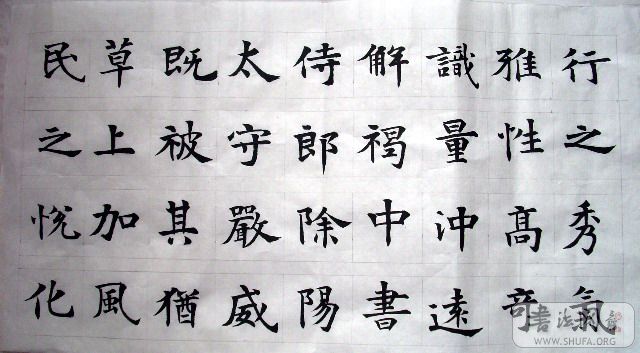 行之秀氣
雅性髙竒
識量沖遠
解褐中書
侍郎除陽
太守嚴威
既被其猶
草上加風
民之悅化
書法
WWW.SHUFA.ORG